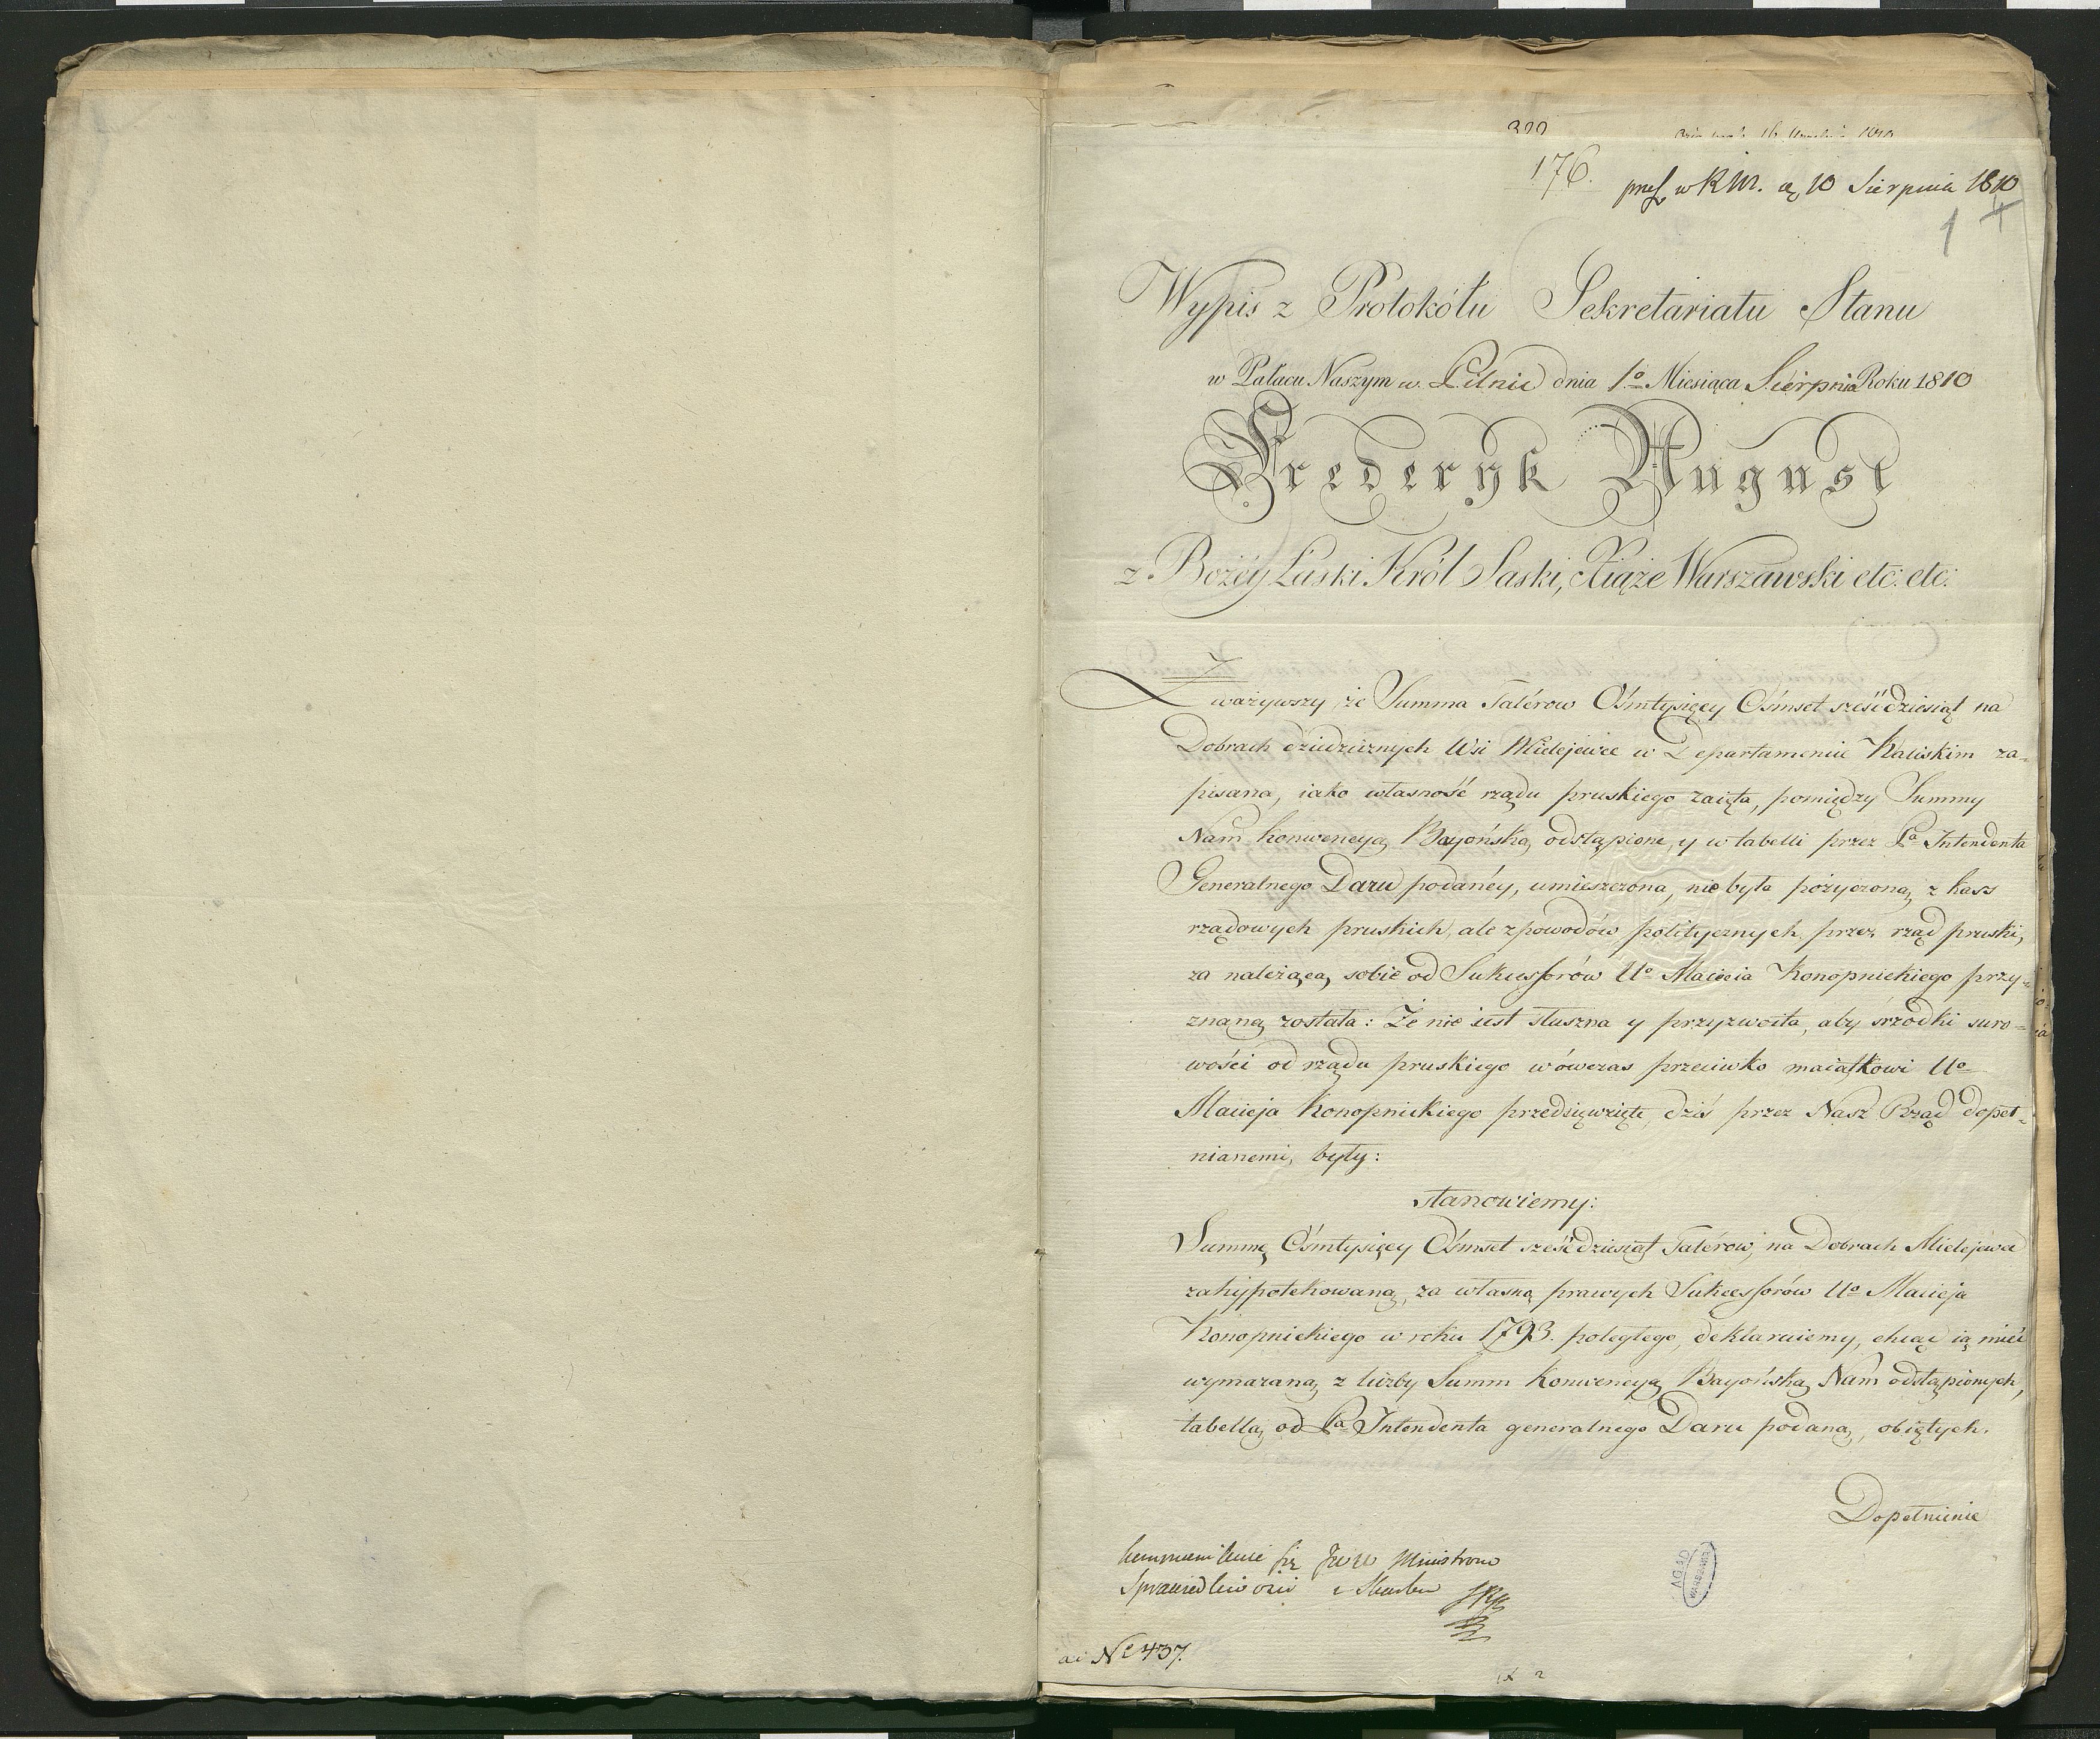 176.
pres. w R M. d. 10 Sierpnia 1810
1
Wypis z Protokółu Sekretariatu Stanu
w Pałacu Naszym w Pilnic dnia 1º Miesiąca Sierpnia Roku 1810
Frederyk August
z Bożéy Łaski Król Saski, Xiąże Warszawski etc: etc:
Zważywszy, że Summa Talérow Ośmtysięcy Ośmset sześćdziesiąt na
Dobrach dziedzicznych Wsi Mielejewce w Departamencie Kaliskim za-
pisana, iako własność rządu pruskiego zaięta, pomiędzy Summy
Nam konwencyą Bayońską odstąpione, y w tabelli przez Pa Intendenta
Generalnego Daru podanéy, umieszczona, nie była pożyczoną z kass
rządowych pruskich, ale z powodów politycznych, przez rząd pruski,
za należącą sobie od Sukcessorów Uº Macieia Konopnickiego przy-
znaną została: Że nie iest słuszna y przyzwoita, aby śrzodki suro-
wości od rządu pruskiego wówczas przeciwko maiątkowi Uº
Macieja Konopnickiego przedsięwzięte, dziś przez Nasz Rząd dopeł-
nianemi były:
stanowiemy:
Summę Ośmtysięcy Ośmset sześćdziesiąt Talérow, na Dobrach Mielejewce
zahypotekowaną, za własną prawych Sukcessorów Uº Macieja
Konopnickiego w roku 1793. poległego, deklaruiemy, chcąc ią mieć
wymazaną z liczby Summ Konwencyą Bayońską Nam odstąpionych,
tabellą od Pa Intendenta generalnego Daru podaną, obiętych.
Dopełnienie
kommunikuie się JWW Ministrom
Sprawiedliwości i Skarbu
AGAD
WARSZAWA
ad Nº 437.